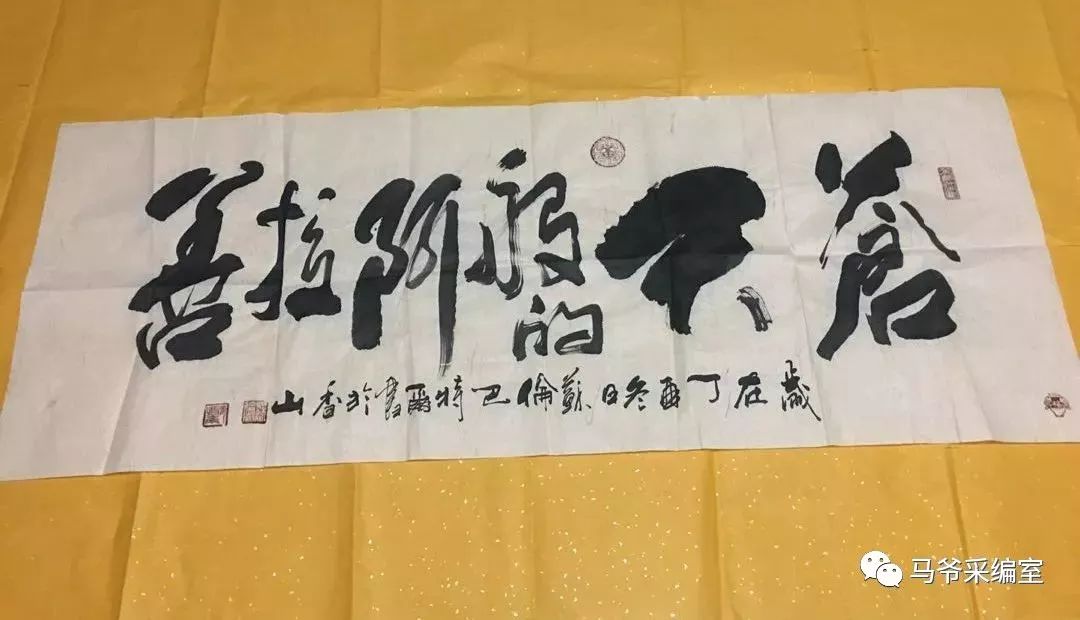 蒼天般的阿拉善
歲在丁酉冬日蘇倫巴特爾書於香山
马爷采编室